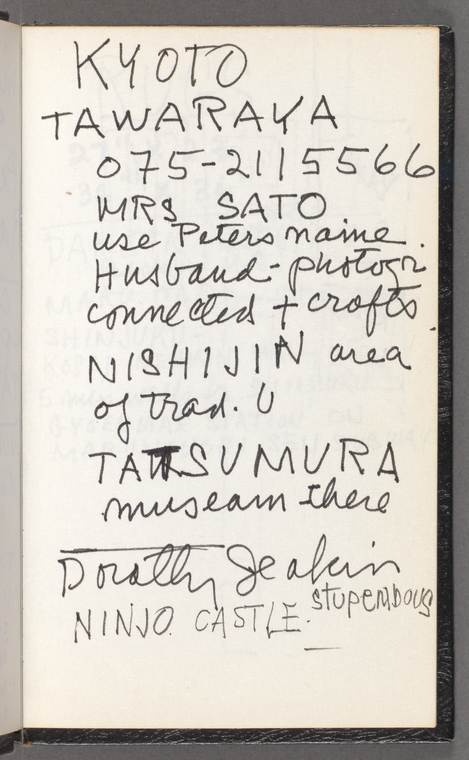 KYOTO
TAWARAYA
075-2115566
MRS SATO
use Peters name.
Husband - photogr
connected + crafts
NISHIJIN area
of trad.
TATSUMURA
museam there
Dorothy Jeakin
stupendous
NINJO. CASTLE.